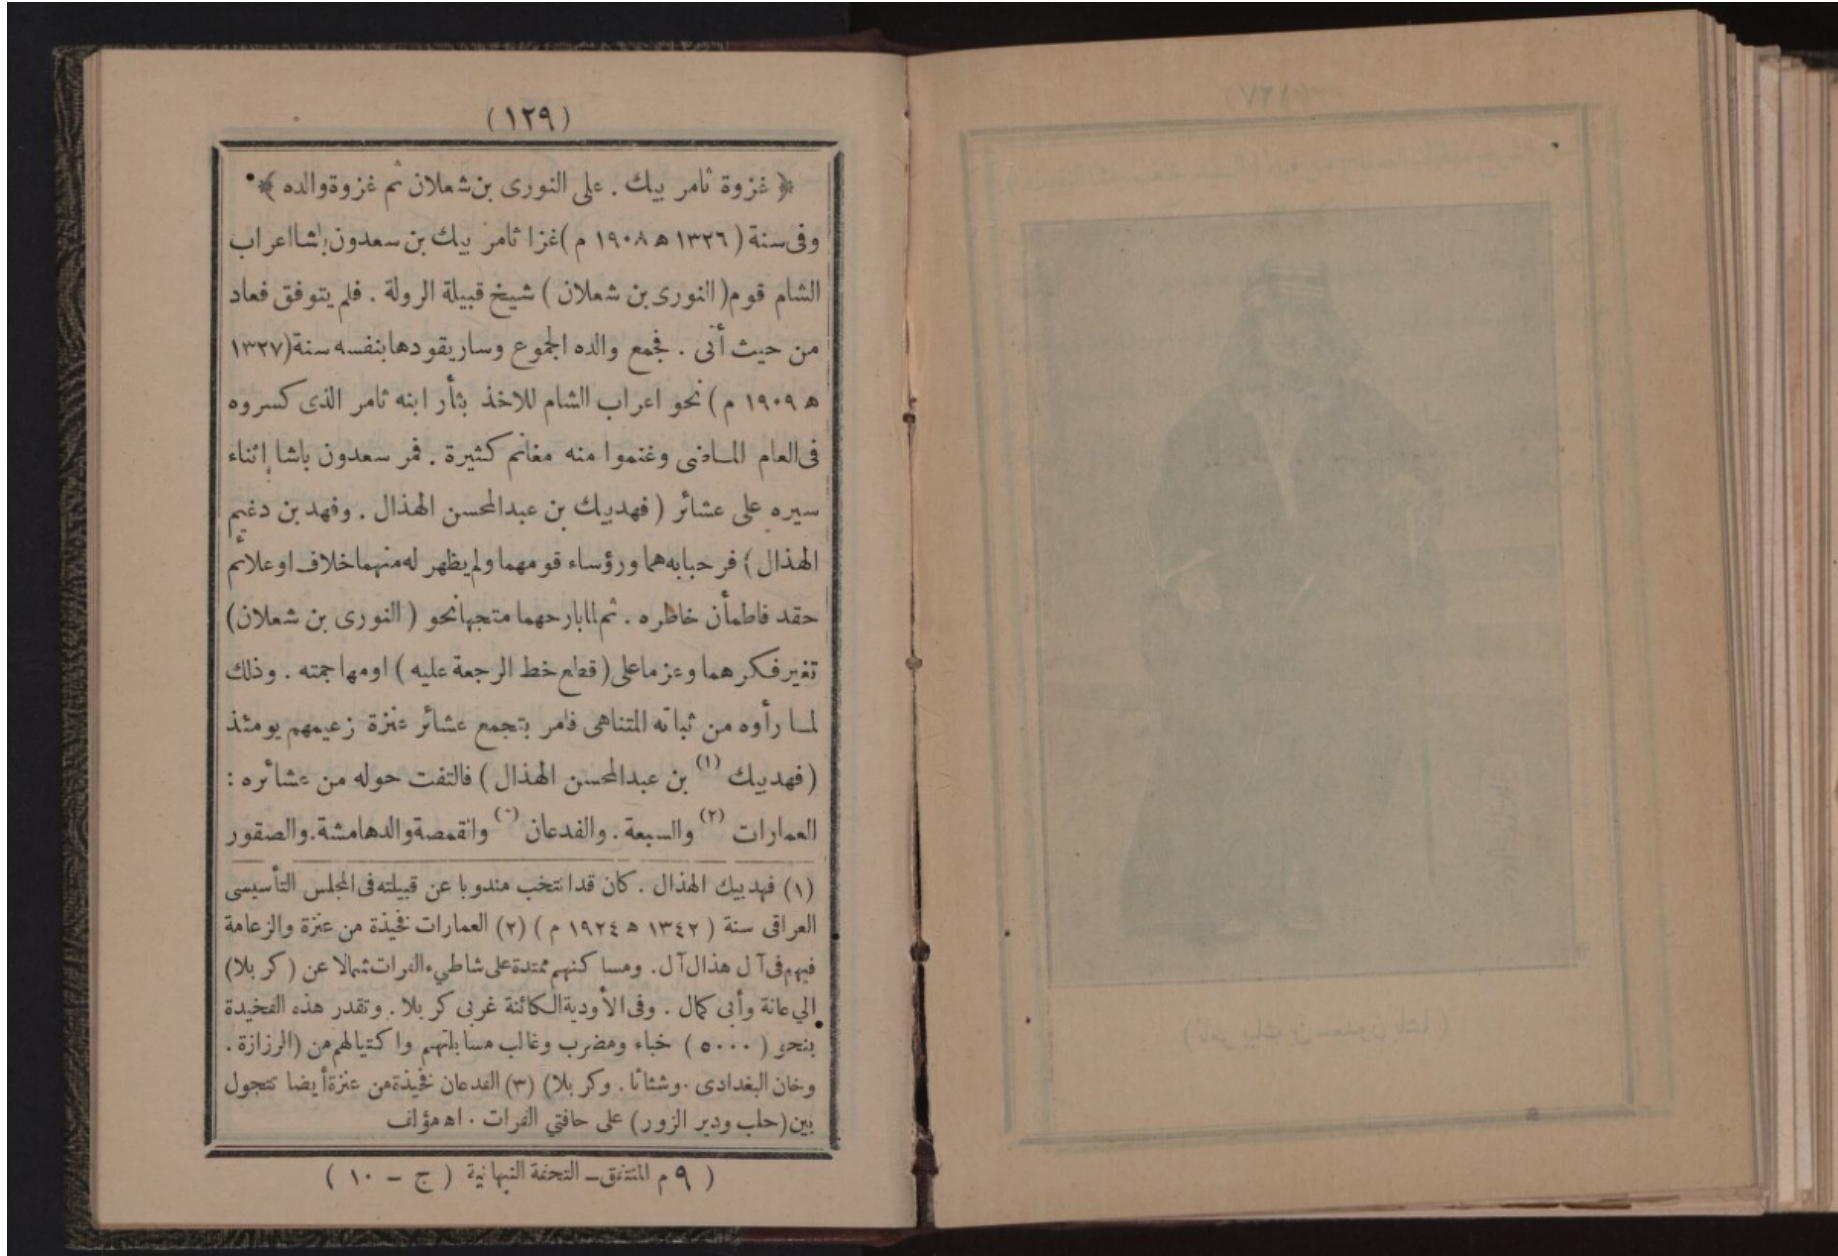 (١٢٩)
﴿ غزوة ثامر بيك . على النورى بن شعلان ثم غزوة والده ﴾
وفى سنة ( ١٣٢٦ ه ١٩٠٨ م ) غزا ثامر بيك بن سعدون باشا اعراب
الشام قوم ( النورى بن شعلان ) شيخ قبيلة الرولة . فلم يتوفق فعاد
من حيث أتى . فجمع والده الجموع وسار يقودها بنفسه سنة (١٣٢٧
ه ١٩٠٩ م ) نحو اعراب الشام للاخذ بثأر ابنه ثامر الذى كسروه
فى العام الماضى وغنموا منه مغانم كثيرة . فمر سعدون باشا إثناء
سيره على عشائر ( فهد بيك بن عبدالمحسن الهذال . وفهد بن دغيم
الهذال ) فرحبا به هما ورؤساء قومهما ولم يظهر له منهما خلاف او علائم
حقد فاطمأن خاطره . ثم لما بارحهما متجها نحو ( النورى بن شعلان)
تغير فكرهما وعزما على ( قطع خط الرجعة عليه ) او مهاجمته . وذلك
لما رأوه من ثباته المتناهى فامر بتجمع عشائر عنزة زعيمهم يومئذ
( فهد بيك (١) بن عبدالمحسن الهذال ) فالتفت حوله من عشائره :
العمارات (٢) والسبعة . والفدعان والقمصة والدهامشة . والصقور
(١) فهد بيك الهذال . كان قد انتخب مندوبا عن قبيلته فى المجلس التأسيسى
العراقى سنة ( ١٣٤٢ ه ١٩٢٤ م ) (٢) العمارات فخيذة من عنزة والزعامة
فيهم فى آل هذال آل . ومساكنهم ممتدة على شاطىء الفرات شمالا عن ( كربلا)
الي عانة وأبى كمال . وفى الأودية الكائنة غربى كربلا . وتقدر هذه الفخيدة
بنحو ( ٥٠٠٠ ) خباء ومضرب وغالب مسابلتهم واكتيالهم من (الرزازة .
وخان البغدادى . وشثاثا . وكربلا) (٣) الفدعان فخيذة من عنزة أيضا تتجول
بين (حلب ودير الزور) على حافتي الفرات . اه مؤلف
( ٩ م المنتفق ــ التحفة النبهانية ( ج - ١٠ )